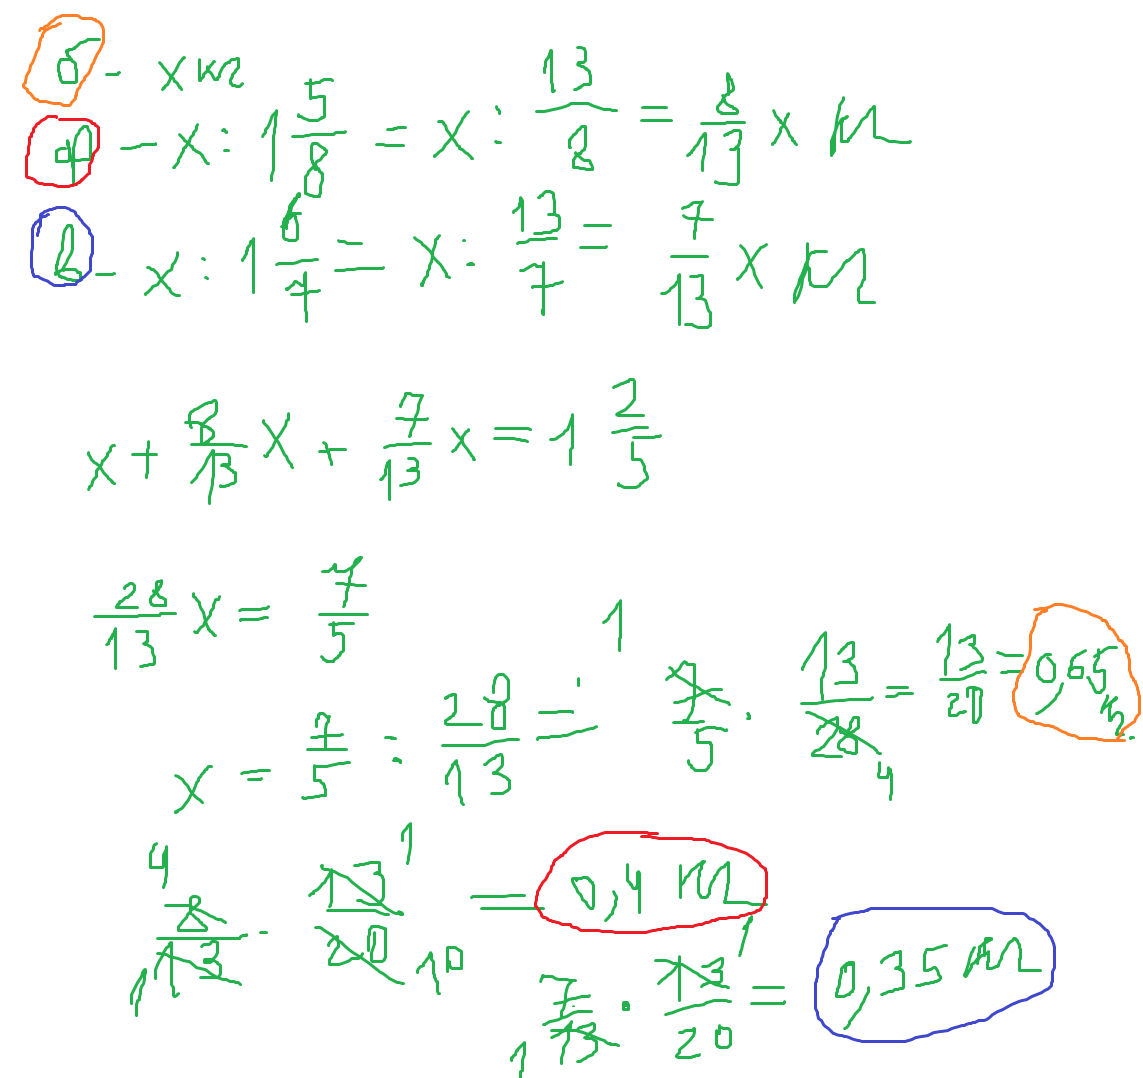 б - x кг
ф - x : 1 5/8 = x : 13/8 = 8/13 x кг
в - x : 1 6/7 = x : 13/7 = 7/13 x кг
x + 8/13 x + 7/13 x = 1 2/5
28/13 x = 7/5
x = 7/5 : 28/13 = 7/5 1 · 13/28 4 = 13/20 = 0,65 кг.
4 8/13 1 · 13/20 1 10 = 0,4 кг
7/13 1 · 13/20 1 = 0,35 кг